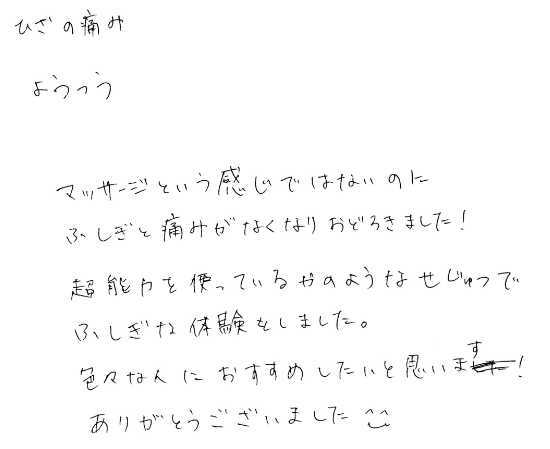 ひざの痛み
ようつう
マッサージという感じではないのに
ふしぎと痛みがなくなりおどろきました!
超能力を使っているかのようなせじゅつで
ふしぎな体験をしました。
色々な人におすすめしたいと思います!
ありがとうございました